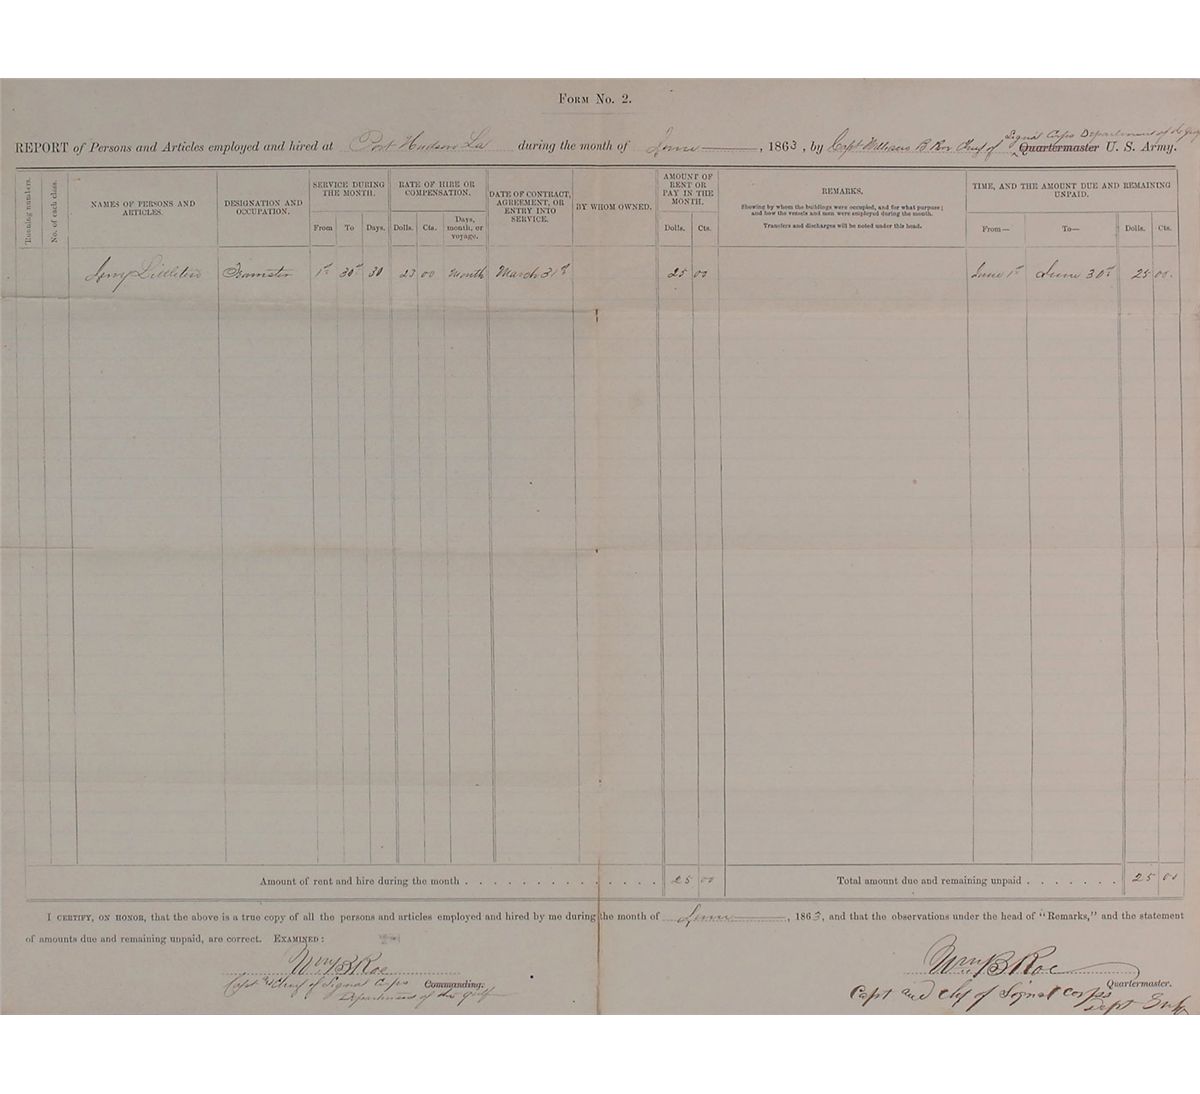 FORM NO. 2.
Signal Corps Department of the Gulf
REPORT of Persons and Articles employed and hired at Port Hudson La during the month of June, 1863, by Capt William B Roe Chief of Quartermaster U. S. Army.
Running numbers.
No. of each class.
NAMES OF PERSONS AND ARTICLES.
DESIGNATION AND OCCUPATION.
SERVICE DURING THE MONTH.
From To Days.
RATE OF HIRE OR COMPENSATION.
Dolls. Cts. Days, month, or voyage.
DATE OF CONTRACT, AGREEMENT, OR ENTRY INTO SERVICE.
BY WHOM OWNED.
AMOUNT OF RENT OR PAY IN THE MONTH.
Dolls. Cts.
REMARKS.
Showing by whom the buildings were occupied, and for what purpose; and how the vessels and men were employed during the month.
Transfers and discharges will be noted under this head.
TIME, AND THE AMOUNT DUE AND REMAINING UNPAID.
From— To— Dolls. Cts.
Teamster 1st 30th 30 00 Month March 31st 25 00 June 1st June 30th 25 00.
Amount of rent and hire during the month 25 00 Total amount due and remaining unpaid 25 00
I CERTIFY, ON HONOR, that the above is a true copy of all the persons and articles employed and hired by me during the month of June, 1863, and that the observations under the head of "Remarks," and the statement
of amounts due and remaining unpaid, are correct. EXAMINED:
Wm B Roe
Capt & Chief of Signal Corps Commanding.
Department of the Gulf
Wm B Roe
Quartermaster.
Capt and Chf of Signal Corps
Dept Gulf